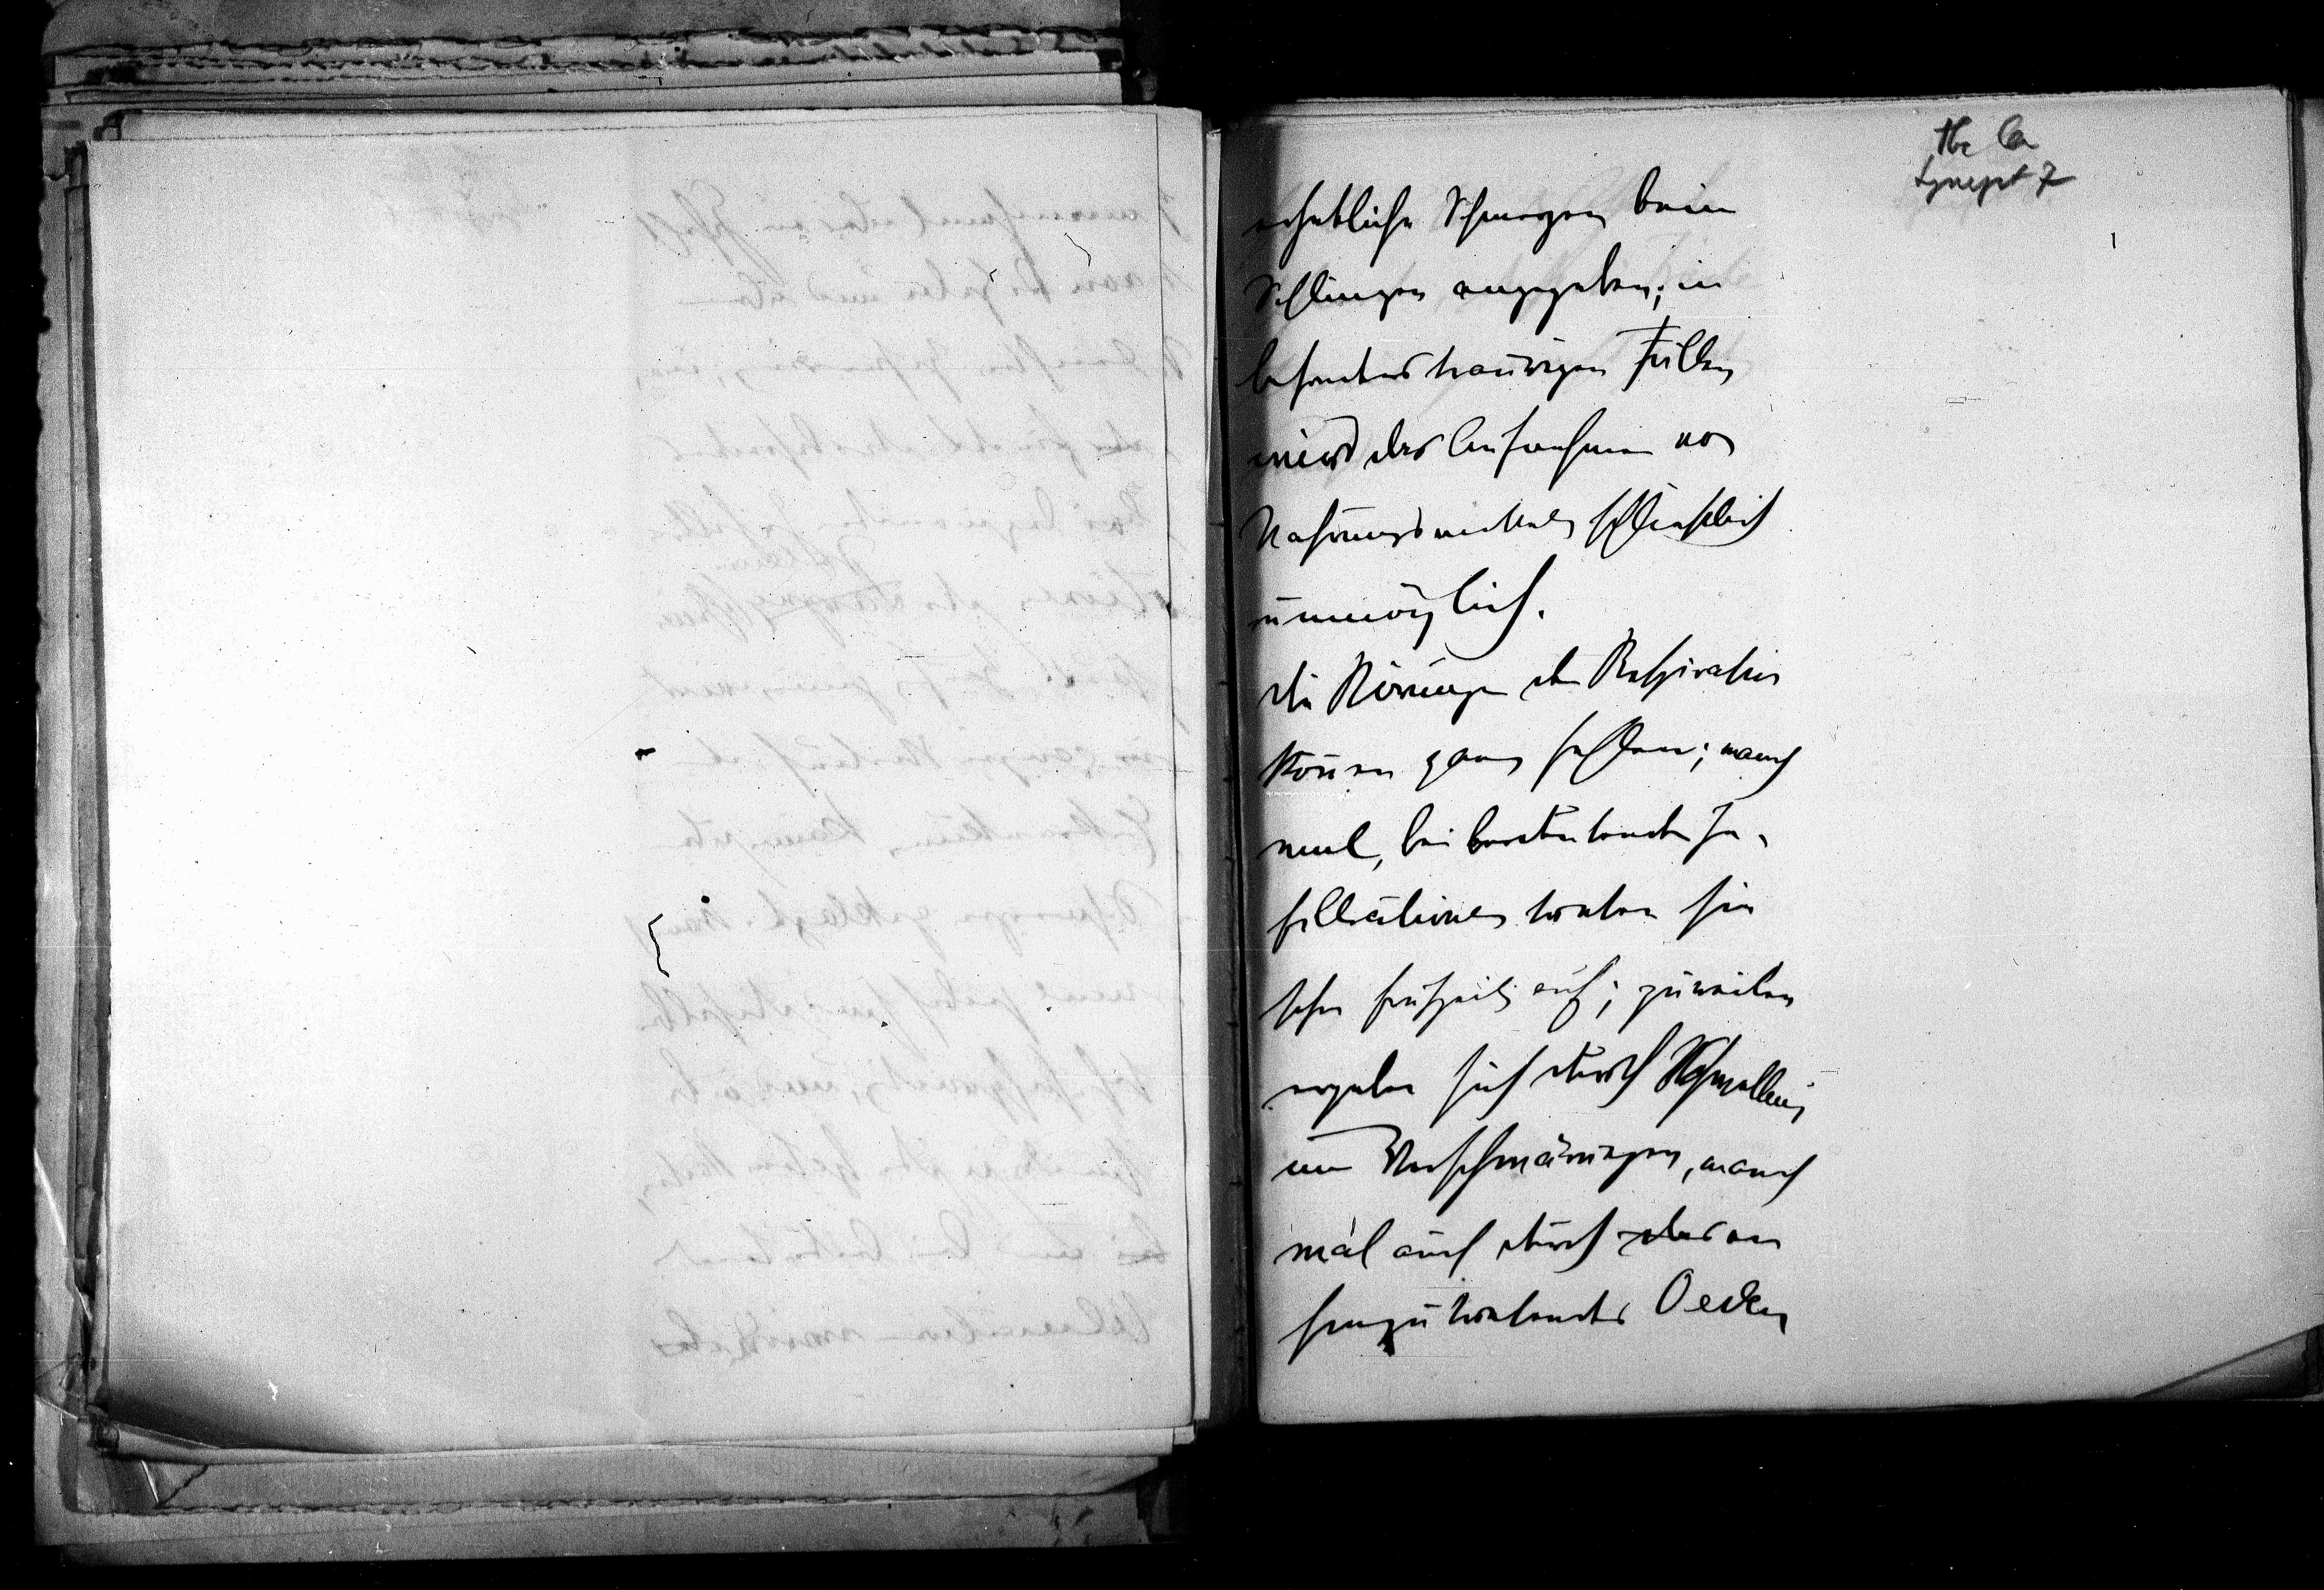 Tbc La
Sympt 7
erhebliche Schmerzen beim
Schlingen angegeben; in
besonders traurigen Fällen
wird das Aufnehmen von
Nahrungsmitteln schließlich
unmöglich.
Die Störungen der Respiration
können ganz fehlen; manch
mal, bei bedeutender In-
filtrationen treten sie
schon frühzeitig auf; zuweilen
ergeben sich durch Schwellung
und Verschwärungen, manch
mal auch durch das an
hinzutretendes Oedem